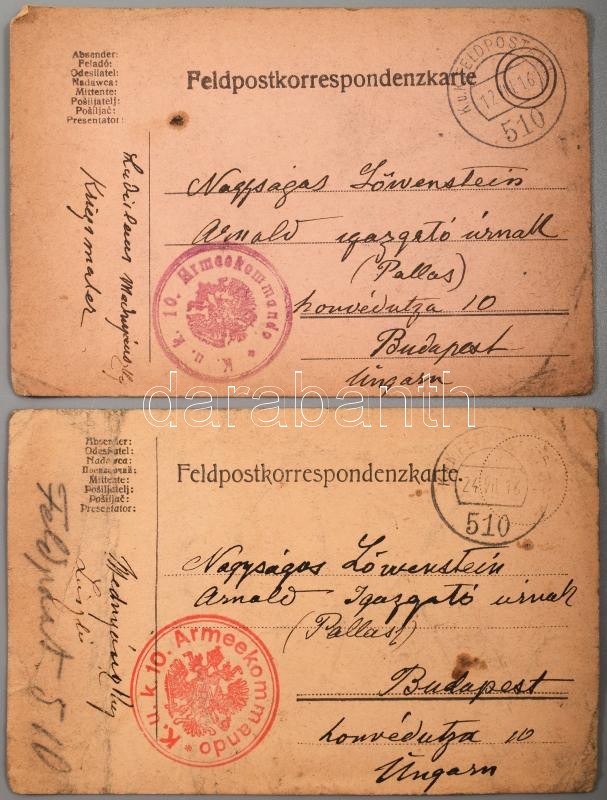 Absender:
Feladó:
Odesílatel:
Nadawca:
Mittente:
Pošiljatelj:
Pošiljač:
Presentator:
Feldpostkorrespondenzkarte
K.u.K. FELDPOSTAMT
12. 16
510
Ladislaus
Kriegsmaler
Nagyságos Löwenstein
Arnold igazgató úrnak
(Pallas)
honvédutza 10
Budapest
Ungarn
K. u. k. 10. Armeekommando *
darabanth
Absender:
Odesílatel:
Nadawca:
Mittente:
Pošiljatelj:
Pošiljač:
Presentator:
Feldpostkorrespondenzkarte.
24. VII. 16
510
Feldpost 510
Mednyánszky
László
Nagyságos Löwenstein
Arnold Igazgató úrnak
(Pallas)
Budapest
honvédutza 10
Ungarn
K. u. k. 10. Armeekommando *